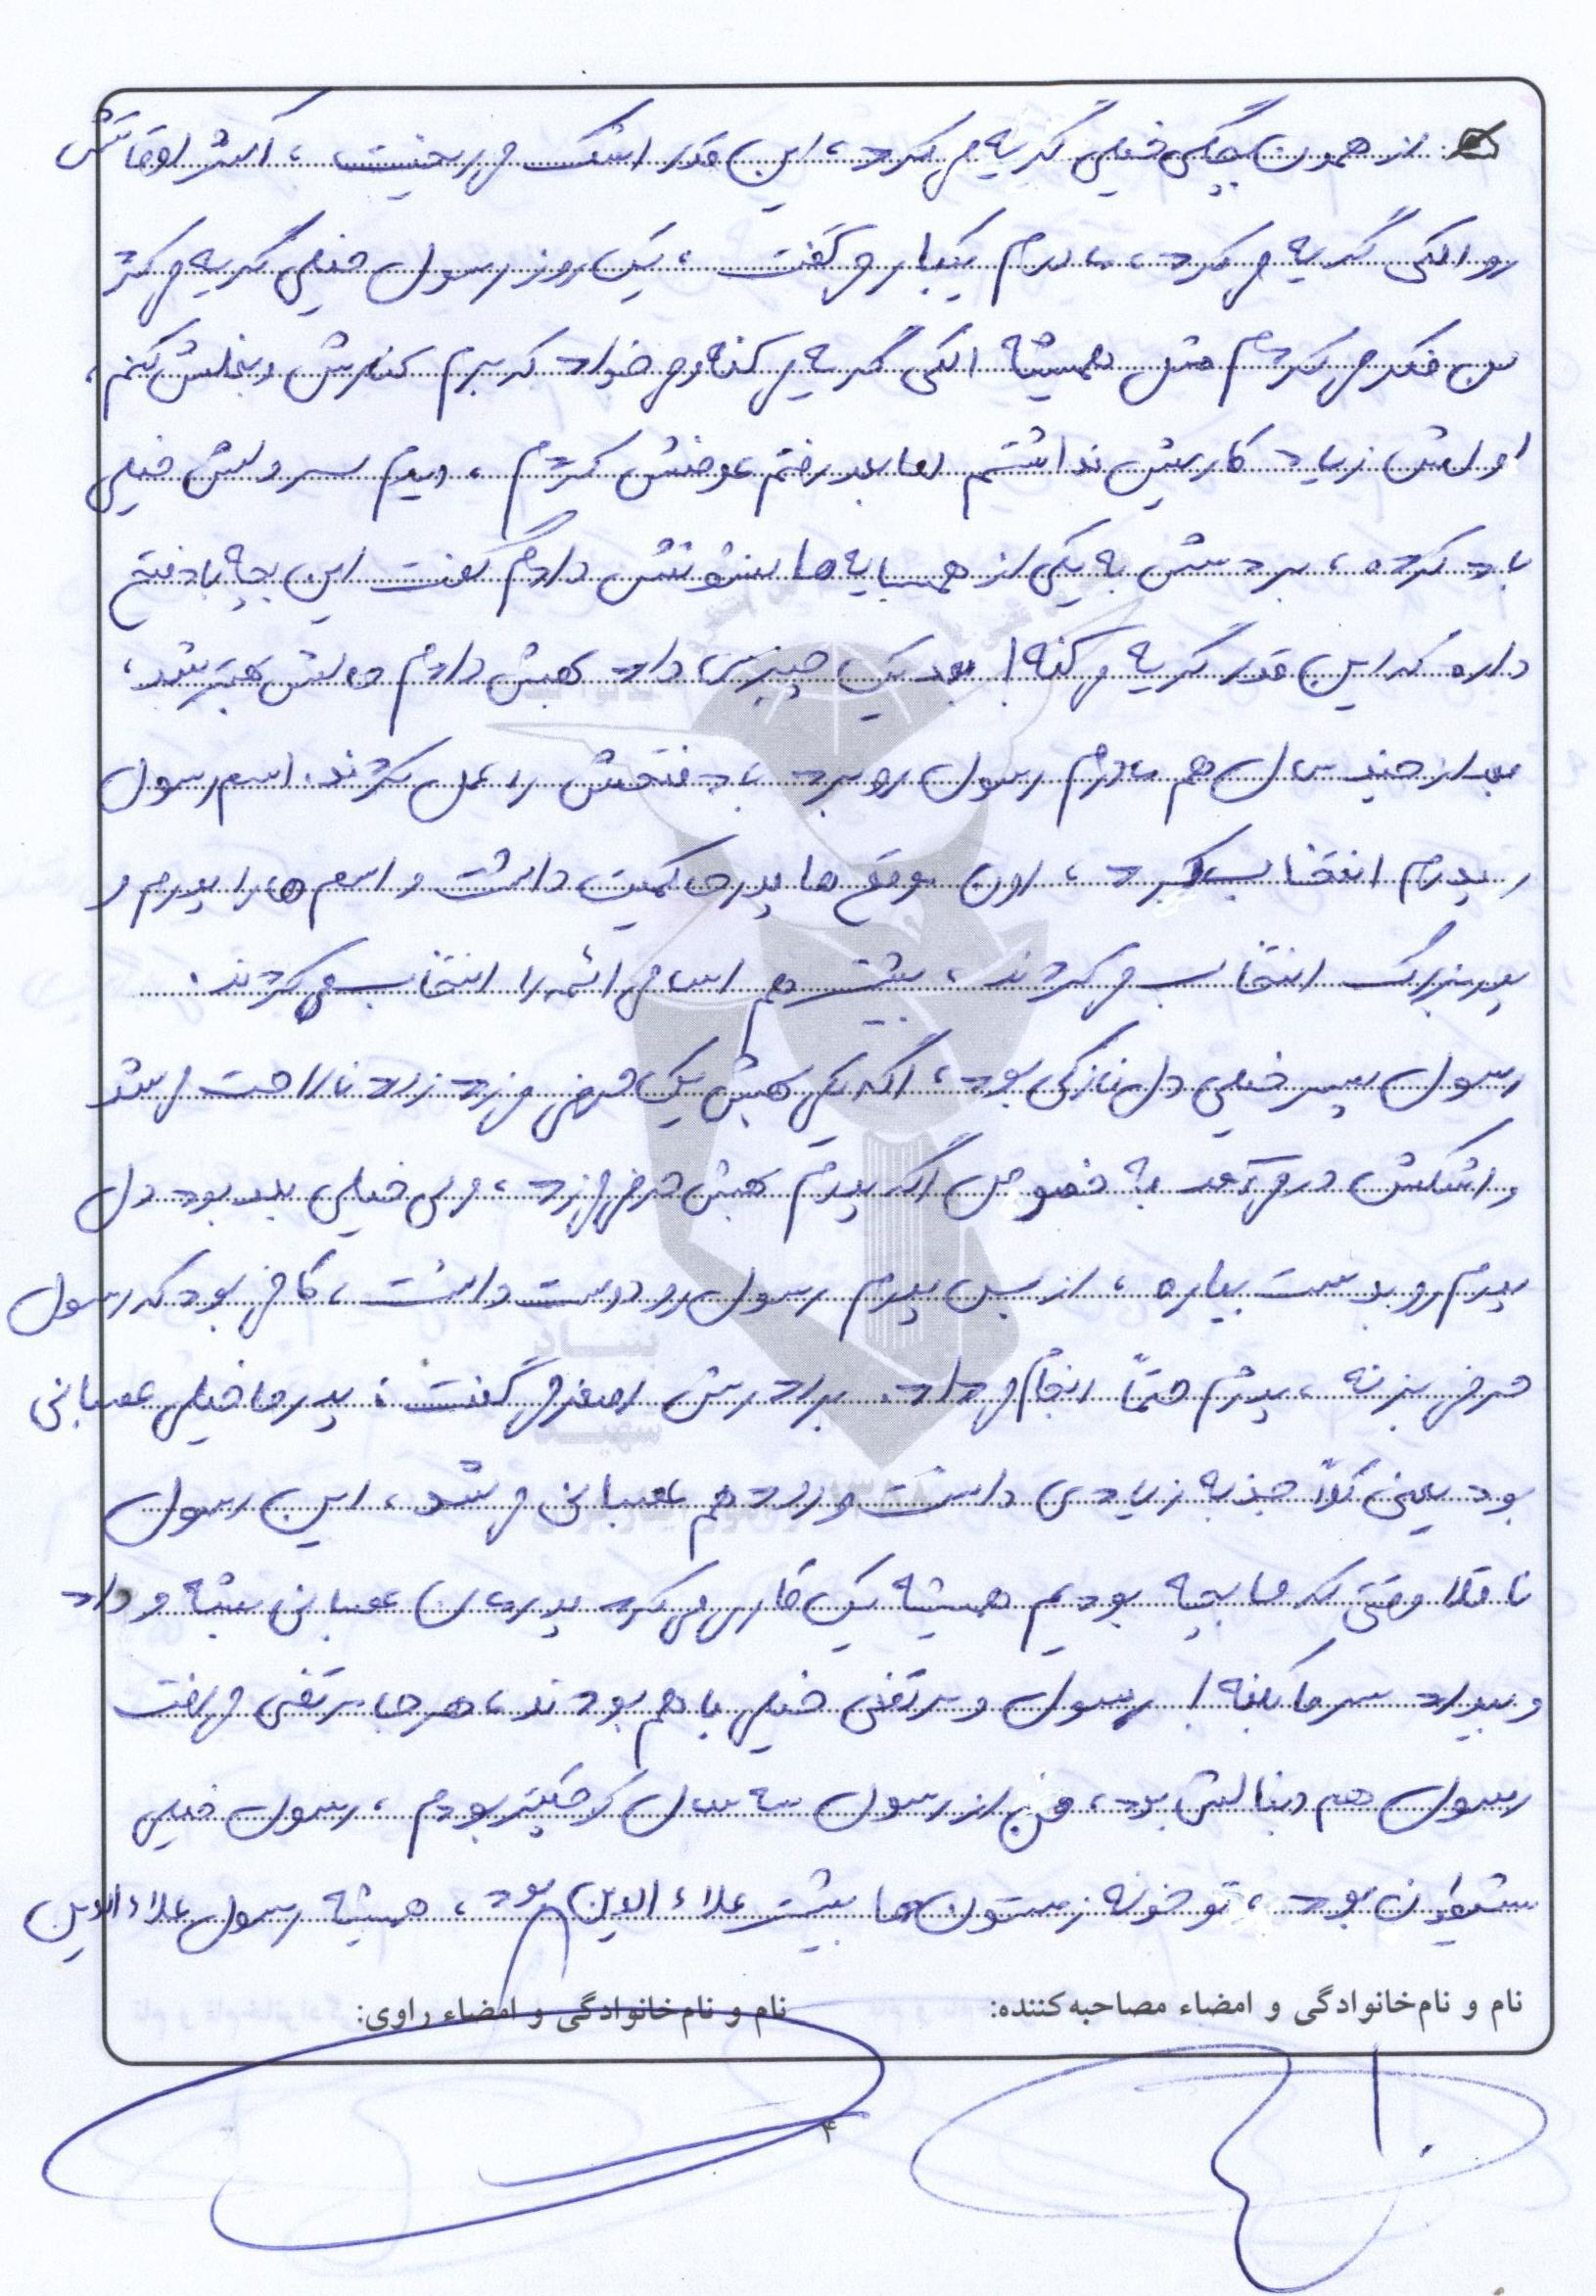 از همون بچگی خیلی گریه می کرد، این قدر اشک می ریخت، اکثر اوقاتش
رو الکی گریه می کرد، مادرم یکبار می گفت، یک روز رسول خیلی گریه می کرد
من فکر می کردم مثل همیشه الکی گریه می کنه و می خواد که برم کنارش و بغلش کنم،
اولش زیاد کاریش نداشتم اما بعد رفتم عوضش کردم، دیدم سر دلش خیلی
باد کرده، بردمش به یکی از همسایه ها نشونش دادم گفت این بچه باد فتح
داره که این قدر گریه می کنه! بعد یک چیزی داد بهش دادم حالش بهتر شد،
بعد از چند سال هم مادرم رسول رو برد باد فتحش را عمل کردند. اسم رسول
ر پدرم انتخاب کرد، اون موقع ها پدر حاکمیت داشت و اسم ها را پدرم و
پدربزرگ انتخاب می کردند، بیشتر هم اسامی ائمه را انتخاب می کردند.
رسول پسر خیلی دل نازکی بود، اگه یکی بهش یک حرفی می زد زود ناراحت می شد
و اشکش در می آمد به خصوص اگه پدرم بهش حرف می زد، ولی خیلی بلد بود دل
پدرم رو بدست بیاره، از بس پدرم رسول رو دوست داشت، کافی بود که رسول
حرف بزنه، پدرم حتماً انجام می داد. برادرش اصغر می گفت: پدر ما خیلی عصبانی
بود یعنی کلاً جذبه زیادی داشت و زود هم عصبانی می شد، این رسول
ناقلا وقتی که ما بچه بودیم همیشه یک کاری می کرد پدرمان عصبانی بشه و داد
و بیداد سر ما بکنه! رسول و مرتضی خیلی با هم بودند، هر جا مرتضی می رفت
رسول هم دنبالش بود، من از رسول سه سال کوچکتر بودم، رسول خیلی
شیطون بود، تو خونه زمستون ها بیشتر علاءالدین بود، همیشه رسول علاءالدین
نام و نام‌خانوادگی و امضاء مصاحبه‌کننده:
نام و نام‌خانوادگی و امضاء راوی:
۴